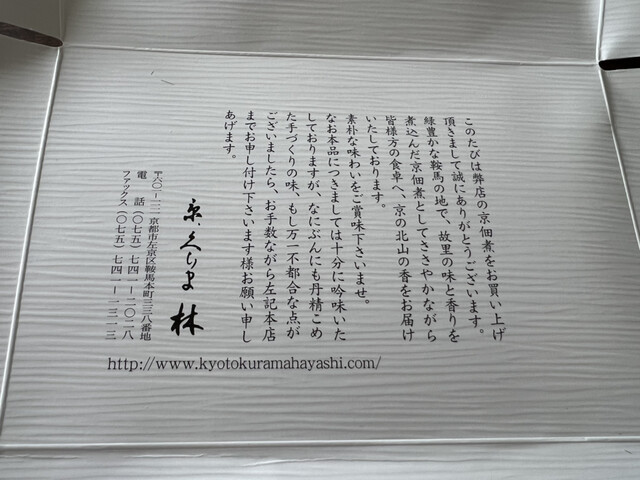 このたびは弊店の京佃煮をお買い上げ
頂きまして誠にありがとうございます。
緑豊かな鞍馬の地で、故里の味と香りを
煮込んだ京佃煮としてささやかながら
皆様方の食卓へ、京の北山の香をお届け
いたしております。
素朴な味わいをご賞味下さいませ。
なお本品につきましては十分に吟味いた
しておりますが、なにぶんにも丹精こめ
た手づくりの味、もし万一不都合な点が
ございましたら、お手数ながら左記本店
までお申し付け下さいます様お願い申し
あげます。
京くらま 林
〒六〇一-一一 京都市左京区鞍馬本町三三八番地
電話(〇七五)七四一-二〇二八
ファックス(〇七五)七四一-一三一三
http://www.kyotokuramahayashi.com/